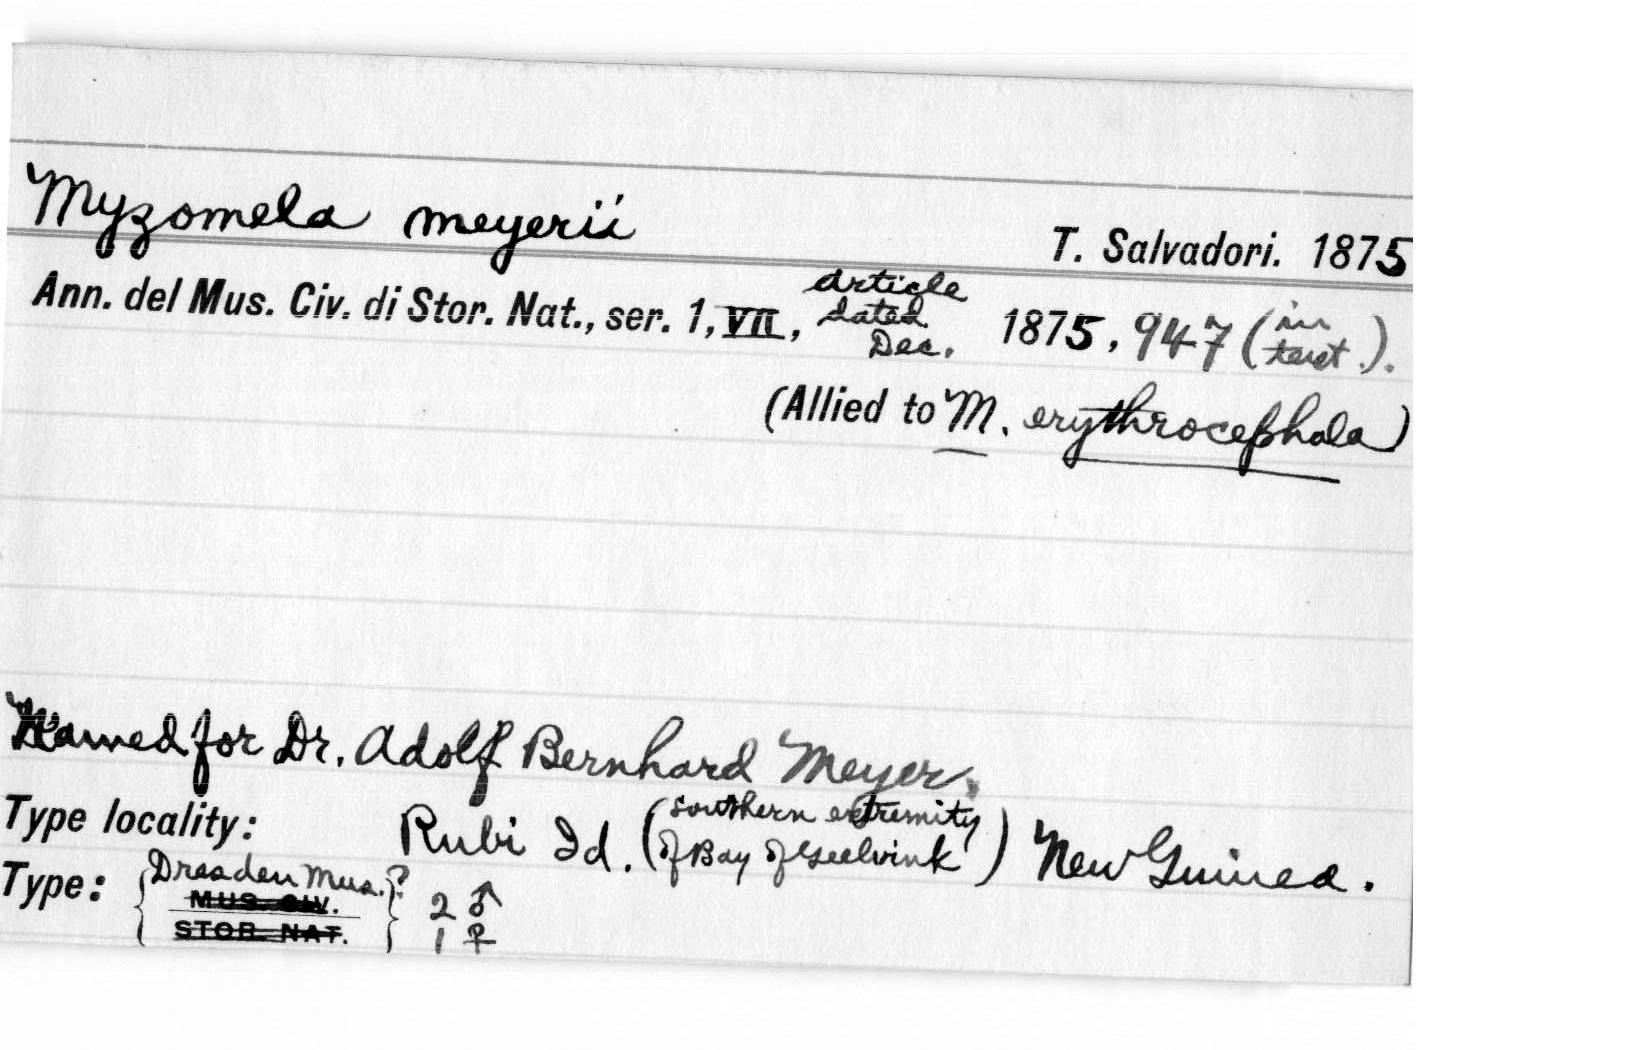 Myzomela meyerii
T. Salvadori. 1875
Ann. del Mus. Civ. di Stor. Nat., ser. 1, VII, article dated Dec. 1875, 947 (in text.).
(Allied to M. erythrocephala)
Named for Dr. Adolf Bernhard Meyer.
Type locality: Rubi Id. (southern extremity of Bay of Geelvink) New Guinea.
Type: {Dresden Mus.?} 2 ♂
MUS. CIV.
STOR. NAT. 1 ♀